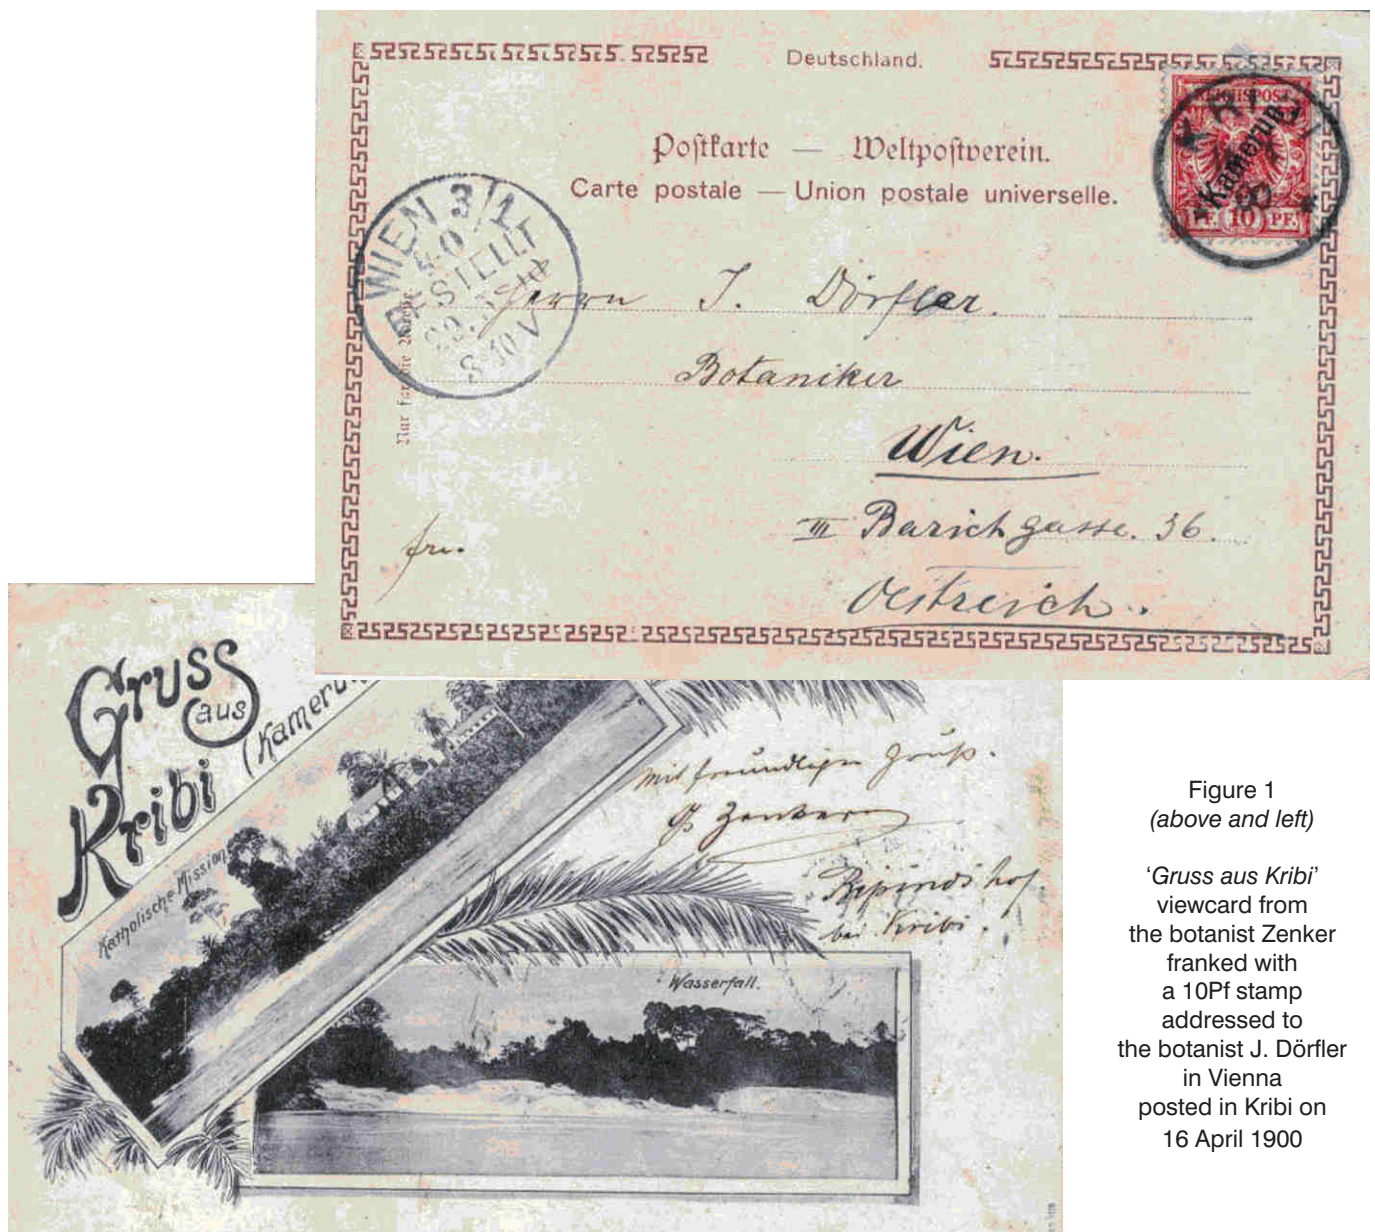 Deutschland.
Postkarte — Weltpostverein.
Carte postale — Union postale universelle.
REICHSPOST
Kamerun
PF. 10 PF.
KRIBI
WIEN 3/1
BESTELLT
Herrn J. Dörfler.
Botaniker
Wien.
III Barichgasse. 36.
Oestreich.
Nur für die
Gruss
aus
Kribi
(Kamerun
Katholische Mission
Mit freundlichen Gruß.
G Zenker
Bipindihof
bei Kribi.
Wasserfall.
Figure 1
(above and left)
‘Gruss aus Kribi’
viewcard from
the botanist Zenker
franked with
a 10Pf stamp
addressed to
the botanist J. Dörfler
in Vienna
posted in Kribi on
16 April 1900